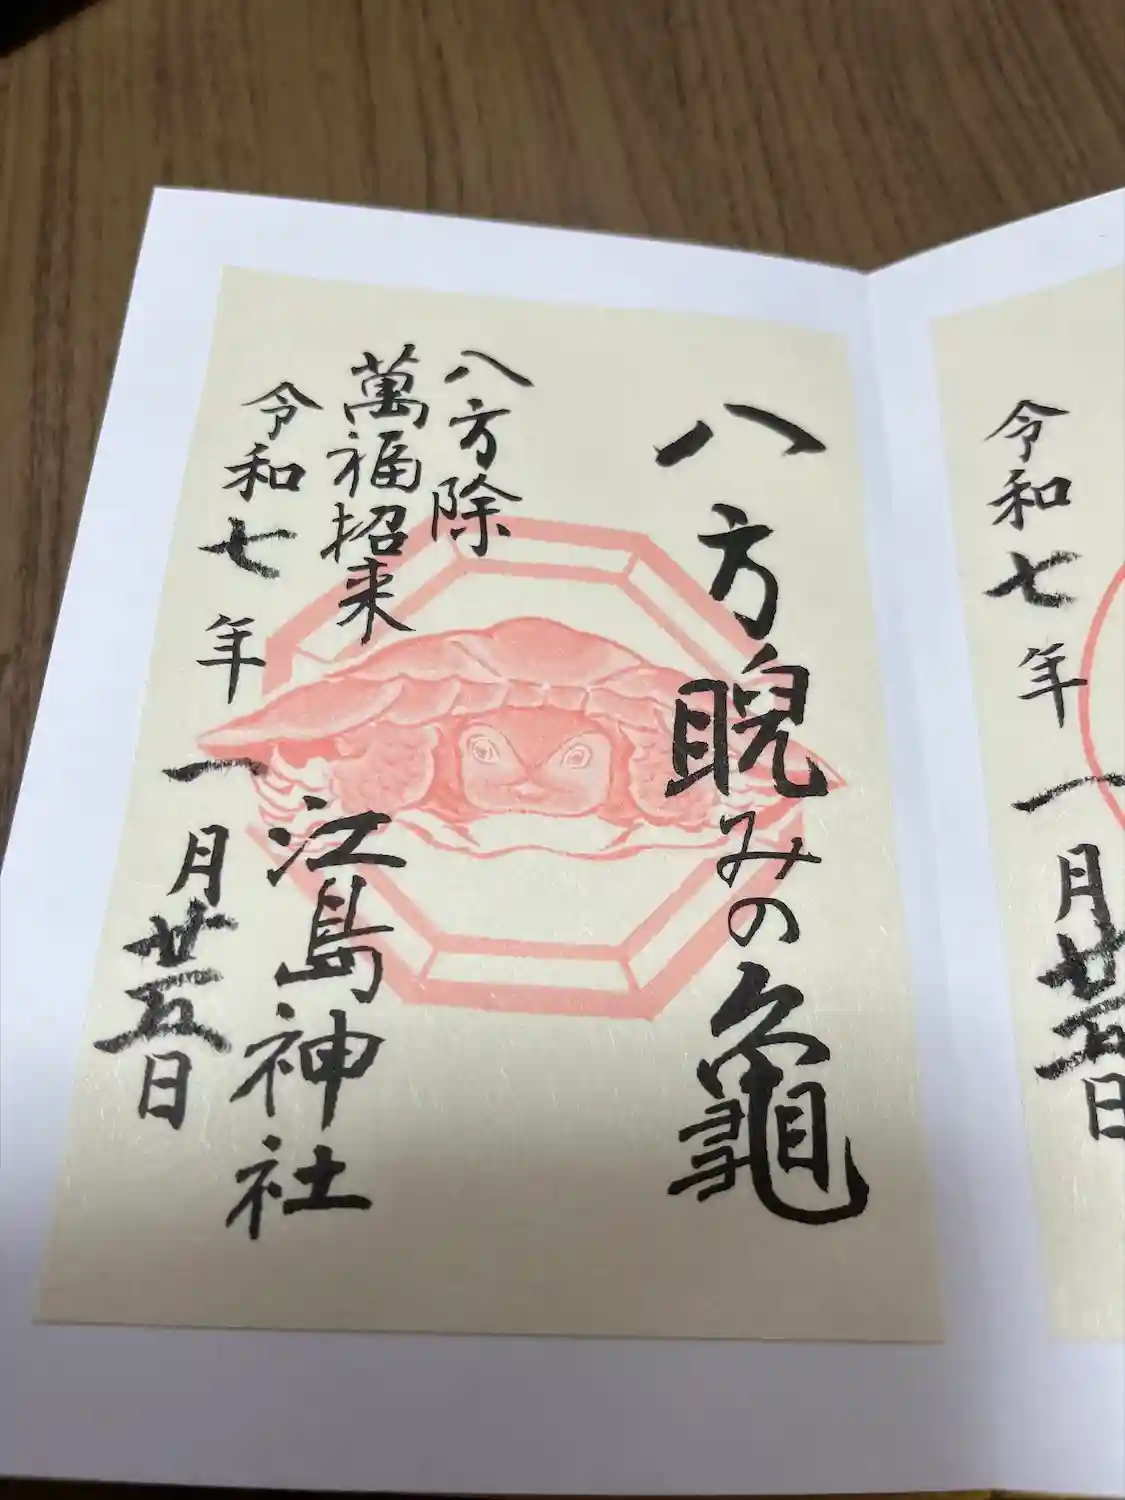 令和七年一月廿五日
八方睨みの龜
八方除
萬福招来
江島神社
令和七年一月廿五日